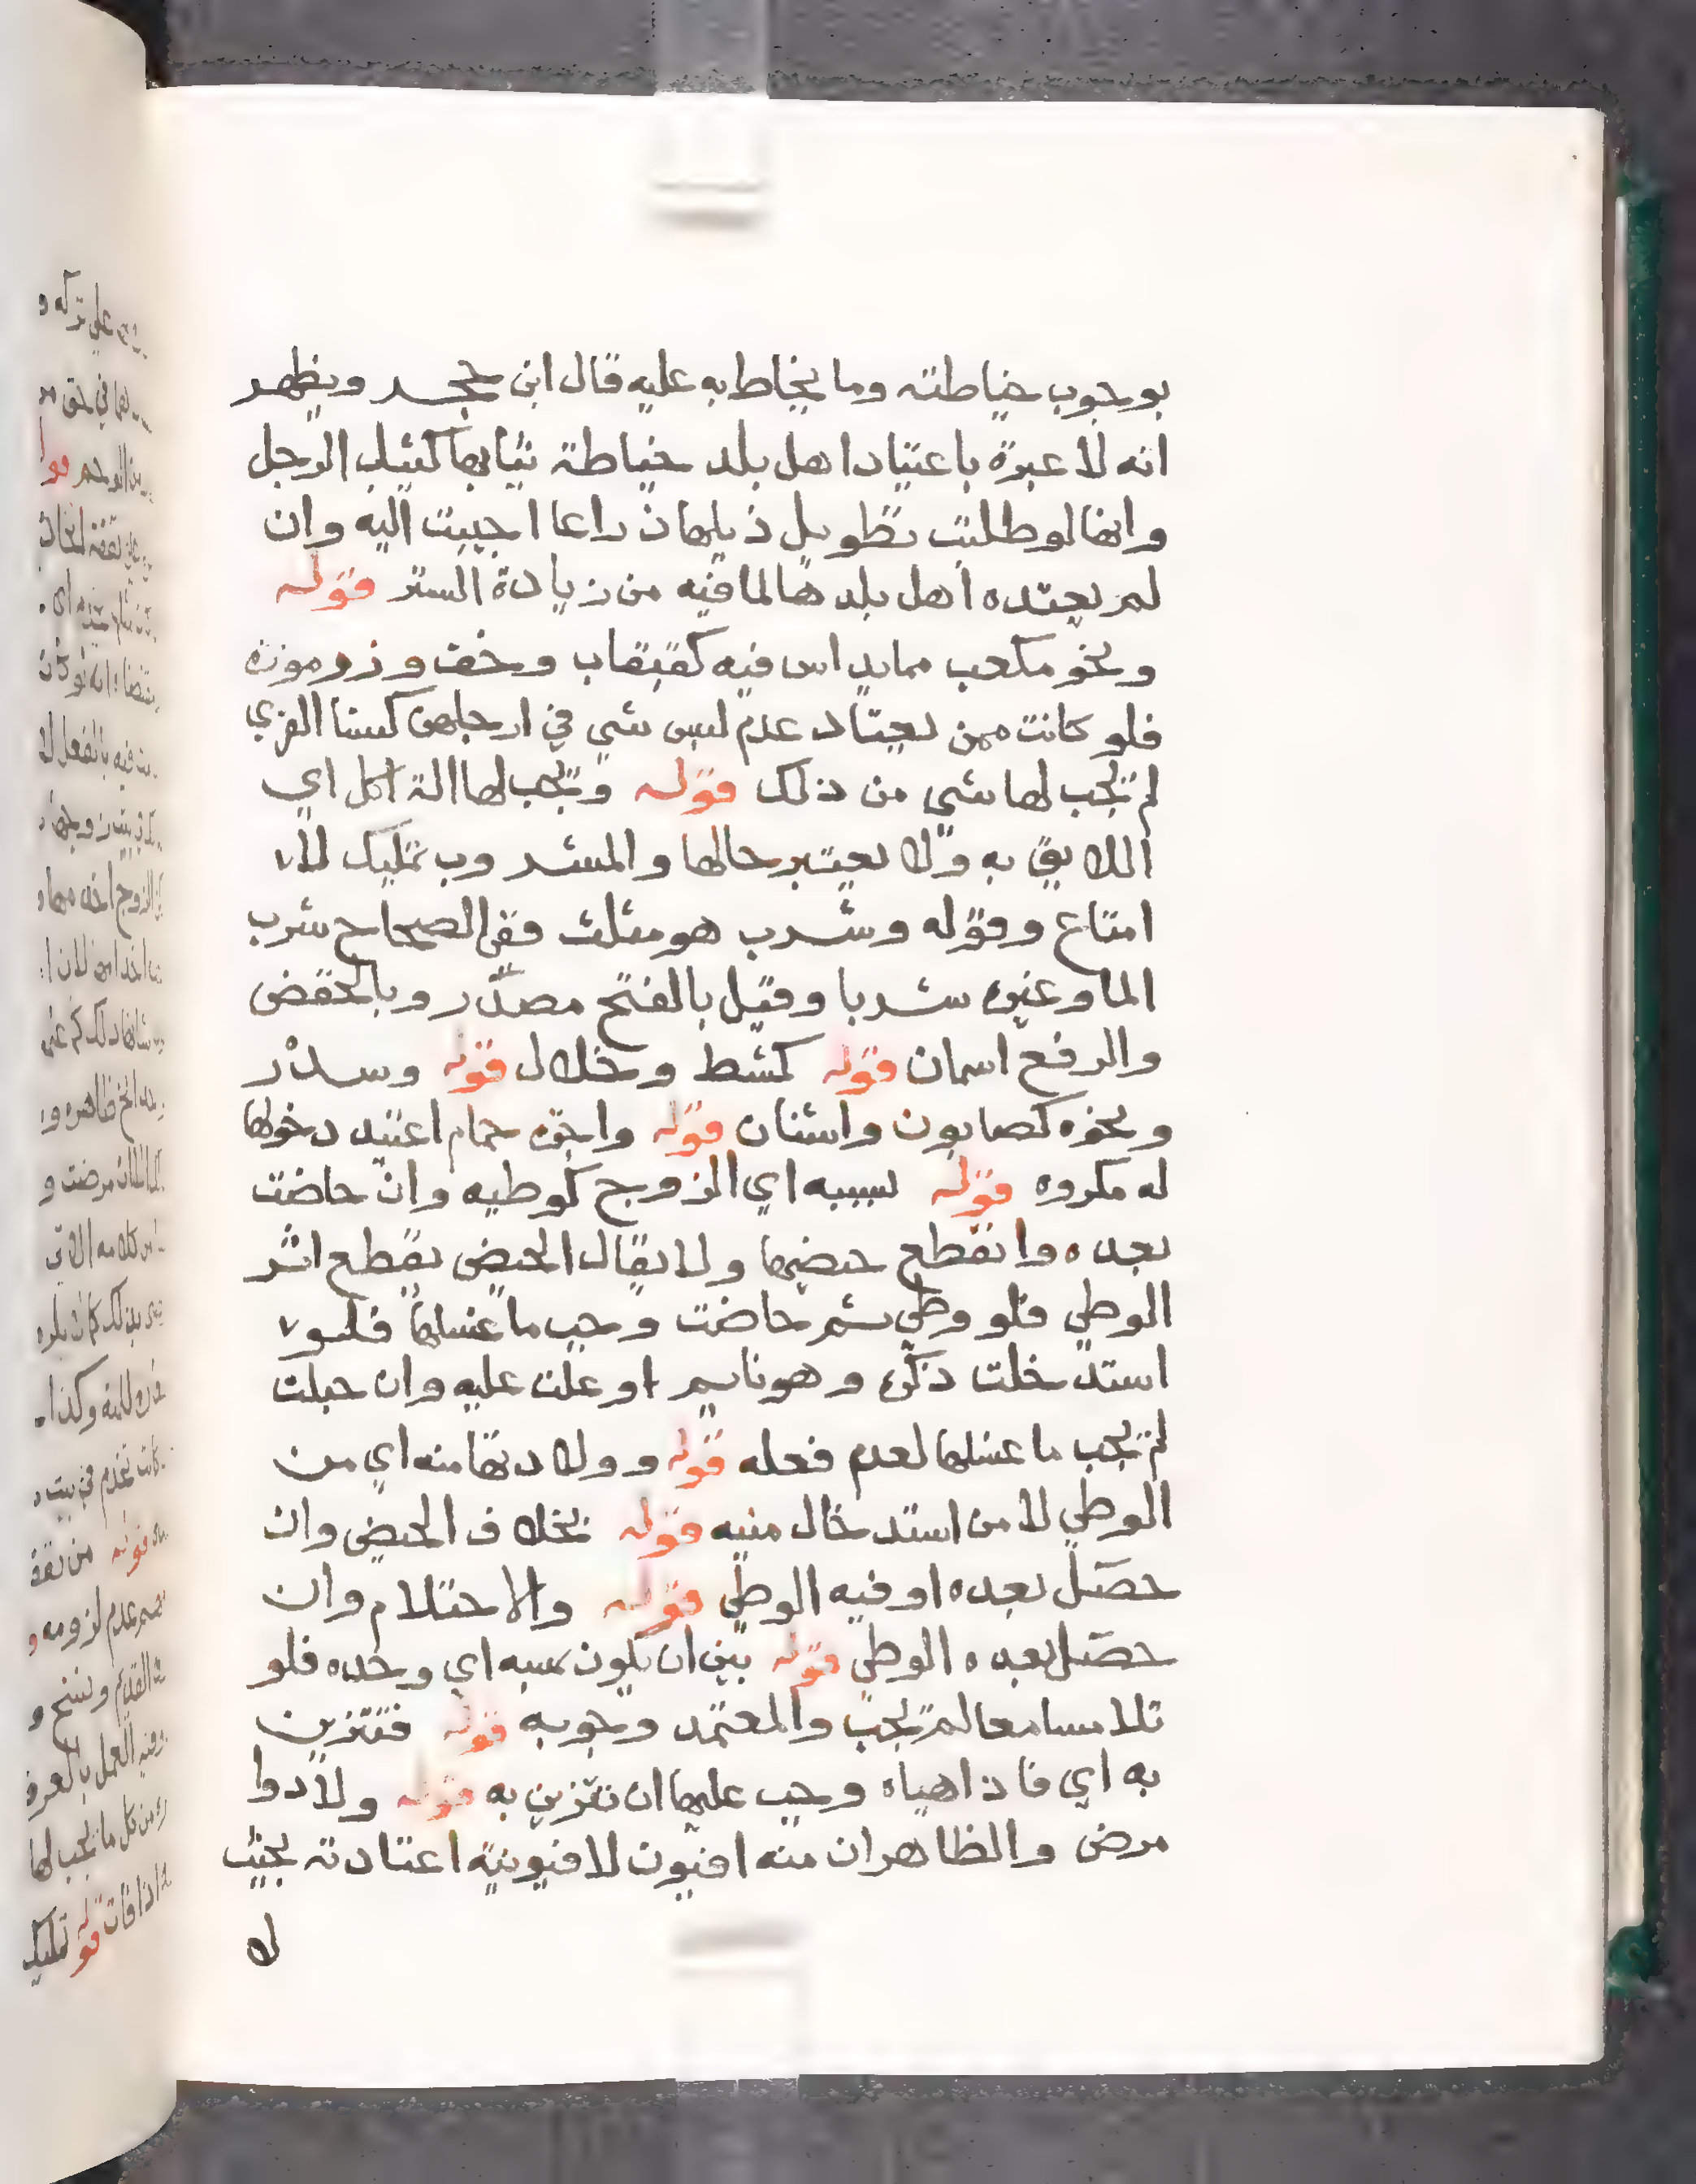 بوجوب خياطته وما يخاط به عليه قال ابن حجر ويظهر
انه لا عبرة باعتياد اهل بلد خياطة ثيابها كثياب الرجل
وانها لو طلبت تطويل ذيلها ذراعا اجيبت اليه وان
لم يعتده اهل بلدها لما فيه من زيادة الستر قوله
ونحو مكعب مما يداس فيه كقبقاب وخف وزرموزة
فلو كانت ممن يعتاد عدم لبس شي في ارجلهن كنسا القري
لم يجب لها شي من ذلك قوله وتجب لها الة اكل اي
اللايق به ولا يعتبر حالها والمشروب تمليك لا
امتاع وقوله وشرب هو مثلث ففي الصحاح شرب
الما وغيره شربا وقيل بالفتح مصدر وبالخفض
والرفع اسمان قوله كمشط وخلال قوله وسدر
ونحوه كصابون واشنان قوله واجرة حمام اعتيد دخولها
له مكروه قوله بسببه اي الزوج كوطيه وان حاضت
بعده وانقطع حيضها ولا يقال الحيض يقطع اثر
الوطي فلو وطي ثم حاضت وجب ما غسلها فلو
استدخلت ذكره وهو نايم او علت عليه وان حبلت
لم يجب ما غسلها لعدم فعله قوله وولادتها منه اي من
الوطي لا من استدخال منيه قوله بخلاف الحيض وان
حصل بعده او فيه الوطي قوله والاحتلام وان
حصل بعده الوطي قوله بين ان يكون بمسه اي وحده فلو
تلامسا معا لم يجب والمعتمد وجوبه قوله فتتزين
به اي فاذا هياه وجب عليها ان تتزين به قوله ولا دوا
مرض والظاهر ان منه افيون لافيونية اعتادته بحيث
لا